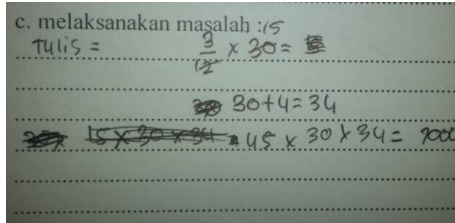 c. melaksanakan masalah :15
Tulis = 3/12 x 30 =
30+4=34
45 x 30 x 34 =